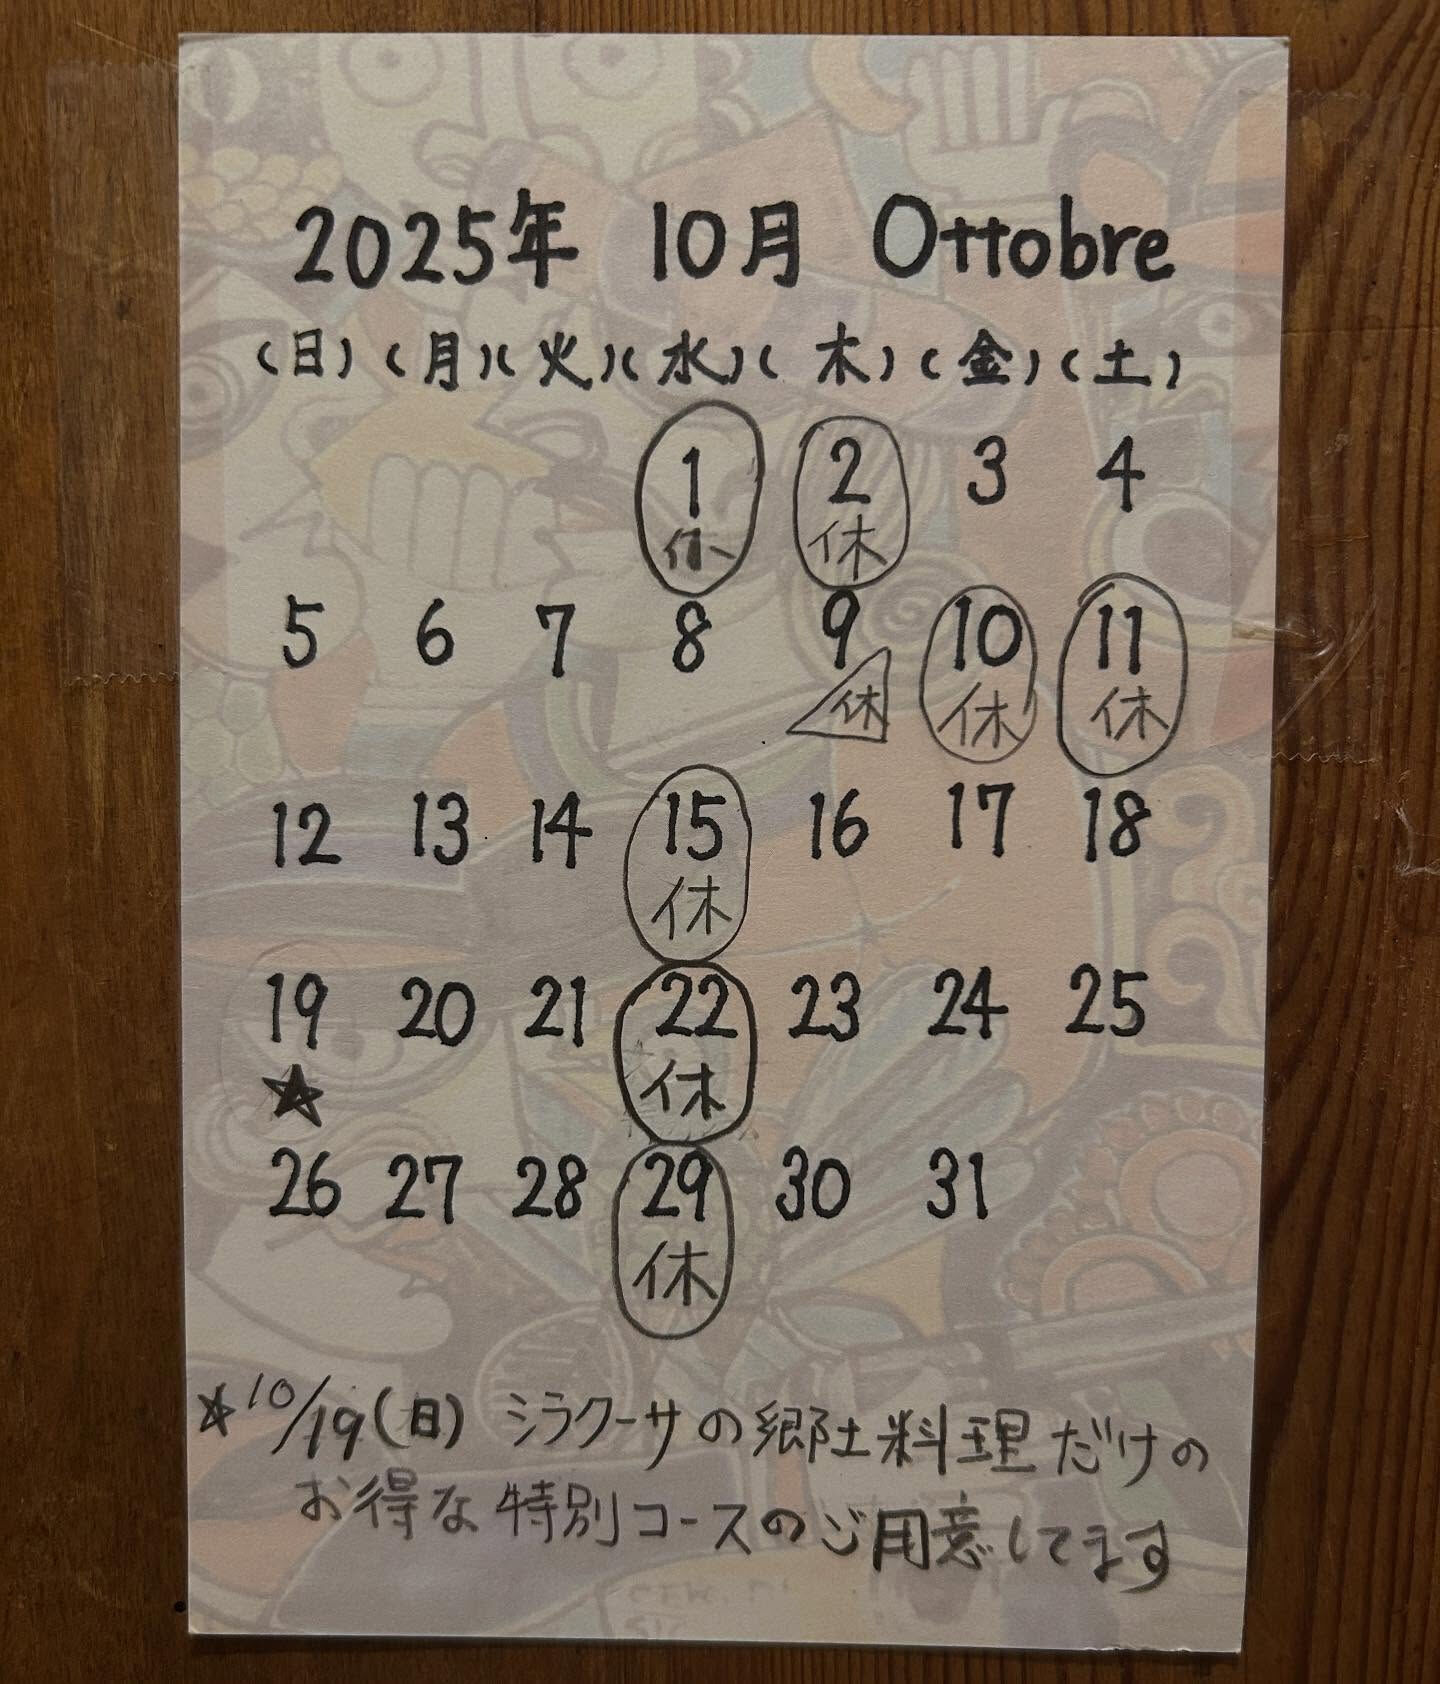 2025年 10月 Ottobre
(日) (月) (火) (水) (木) (金) (土)
1 2 3 4
休 休
5 6 7 8 9 10 11
休 休 休
12 13 14 15 16 17 18
休
19 20 21 22 23 24 25
★ 休
26 27 28 29 30 31
休
☆10/19(日) シラクーサの郷土料理だけの
お得な特別コースのご用意してます